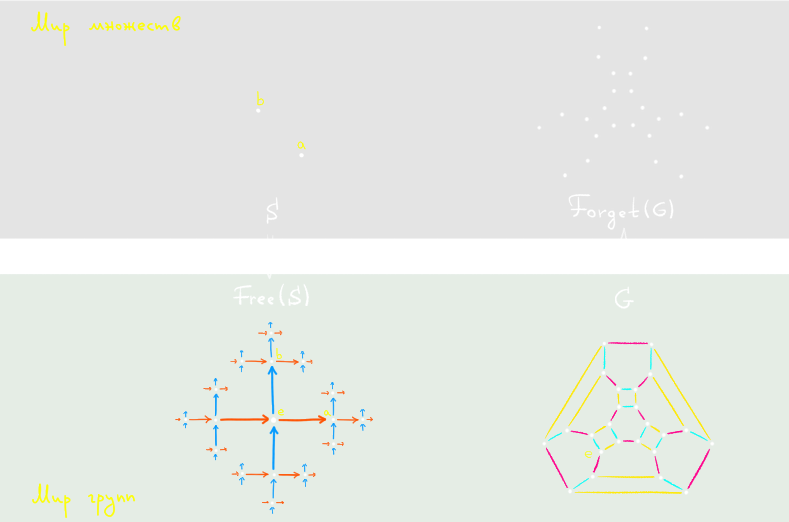 Мир множеств
b
a
S
Forget(G)
Free(S)
G
b
e
a
e
Мир групп